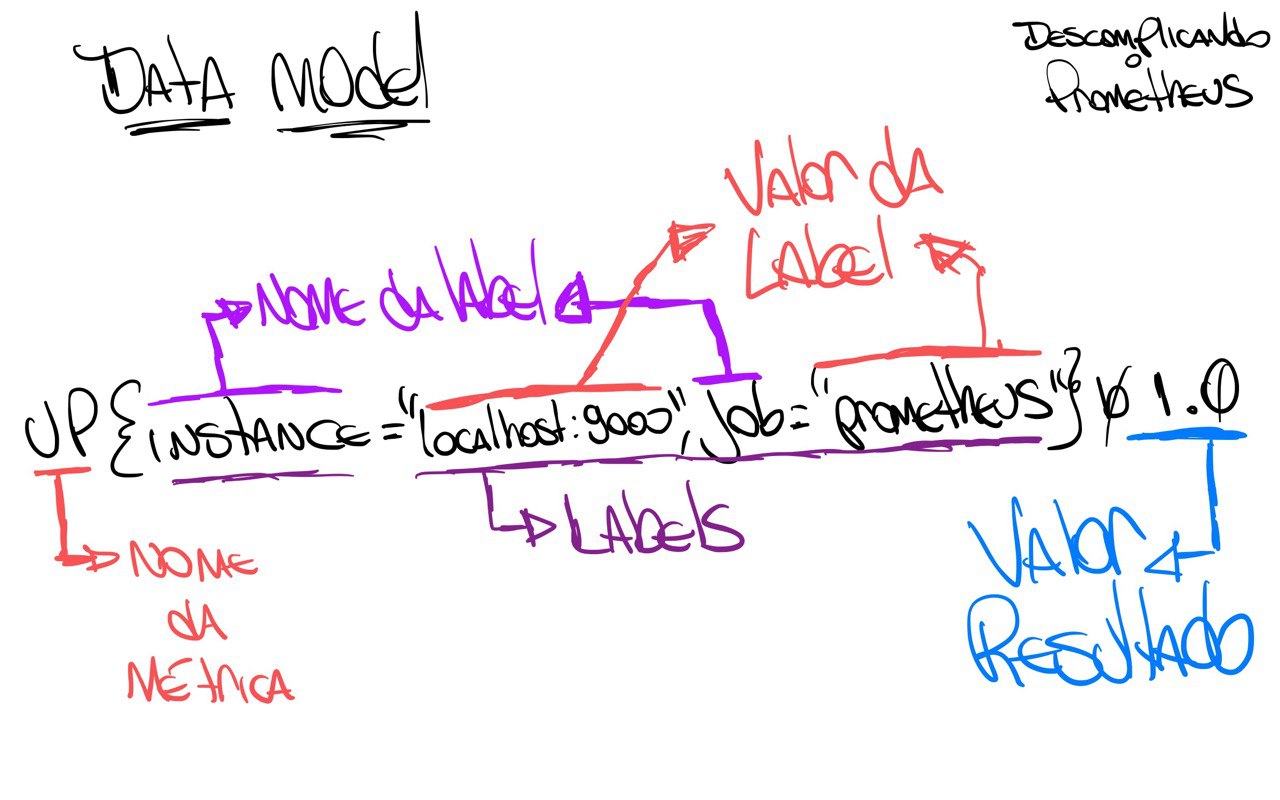 Data Model
Descomplicando
o
Prometheus
Valor da
Label
Nome da label
up{instance="localhost:9000",job="prometheus"} 1.0
Labels
Nome
da
Métrica
Valor
Resultado